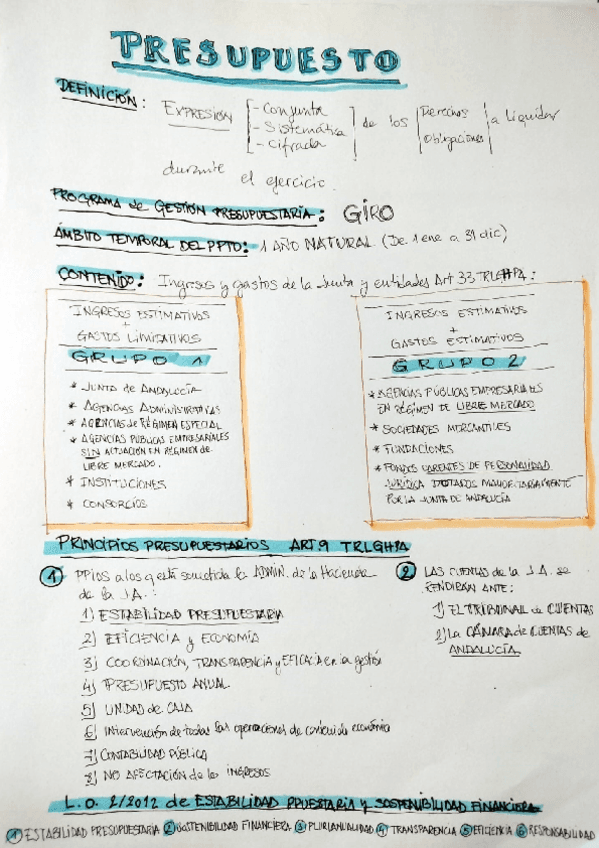 PRESUPUESTO
DEFINICIÓN: EXPRESIÓN - Conjunta - Sistemática - Cifrada de los Derechos Obligaciones a liquidar
durante el ejercicio.
PROGRAMA de GESTIÓN PRESUPUESTARIA: GIRO
ÁMBITO TEMPORAL DEL PPTO: 1 AÑO NATURAL (De 1 ene a 31 dic)
CONTENIDO: Ingresos y gastos de la Junta y entidades Art 33 TRLGHPA:
INGRESOS ESTIMATIVOS
+
GASTOS LIMITATIVOS
GRUPO 1
* JUNTA de ANDALUCÍA
* AGENCIAS ADMINISTRATIVAS
* AGENCIAS de RÉGIMEN ESPECIAL
* AGENCIAS PÚBLICAS EMPRESARIALES
SIN ACTUACIÓN EN RÉGIMEN de
LIBRE MERCADO.
* INSTITUCIONES
* CONSORCIOS
INGRESOS ESTIMATIVOS
+
GASTOS ESTIMATIVOS
GRUPO 2
* AGENCIAS PÚBLICAS EMPRESARIALES
EN RÉGIMEN de LIBRE MERCADO
* SOCIEDADES MERCANTILES
* FUNDACIONES
* FONDOS CARENTES DE PERSONALIDAD
JURÍDICA DOTADOS MAYORITARIAMENTE
POR LA JUNTA DE ANDALUCÍA
PRINCIPIOS PRESUPUESTARIOS ART 9 TRLGHPA
1 PPios a los q está sometida la ADMIN. de la Hacienda
de la J.A.:
1) ESTABILIDAD PRESUPUESTARIA
2) EFICIENCIA y ECONOMÍA
3) COORDINACIÓN, TRANSPARENCIA y EFICACIA en la gestión
4) PRESUPUESTO ANUAL
5) UNIDAD de CAJA
6) Intervención de todas las operaciones de contenido económico
7) CONTABILIDAD PÚBLICA
8) NO AFECTACIÓN de los INGRESOS
2 LAS CUENTAS de la J.A. se
RENDIRÁN ANTE:
1) EL TRIBUNAL de CUENTAS
2) La CÁMARA de CUENTAS de
ANDALUCÍA
L.O. 2/2012 de ESTABILIDAD PPUESTARIA y SOSTENIBILIDAD FINANCIERA
1 ESTABILIDAD PRESUPUESTARIA 2 SOSTENIBILIDAD FINANCIERA 3 PLURIANUALIDAD 4 TRANSPARENCIA 5 EFICIENCIA 6 RESPONSABILIDAD